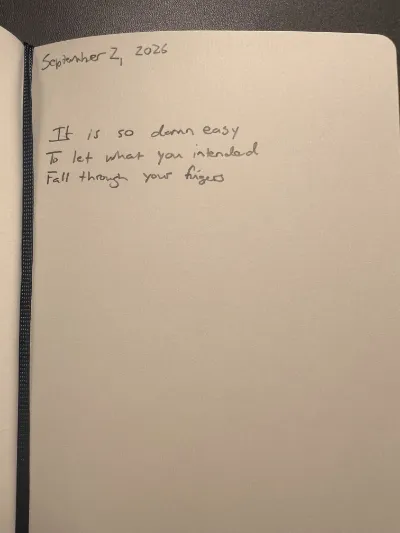 September 2, 2026
It is so damn easy
To let what you intended
Fall through your fingers